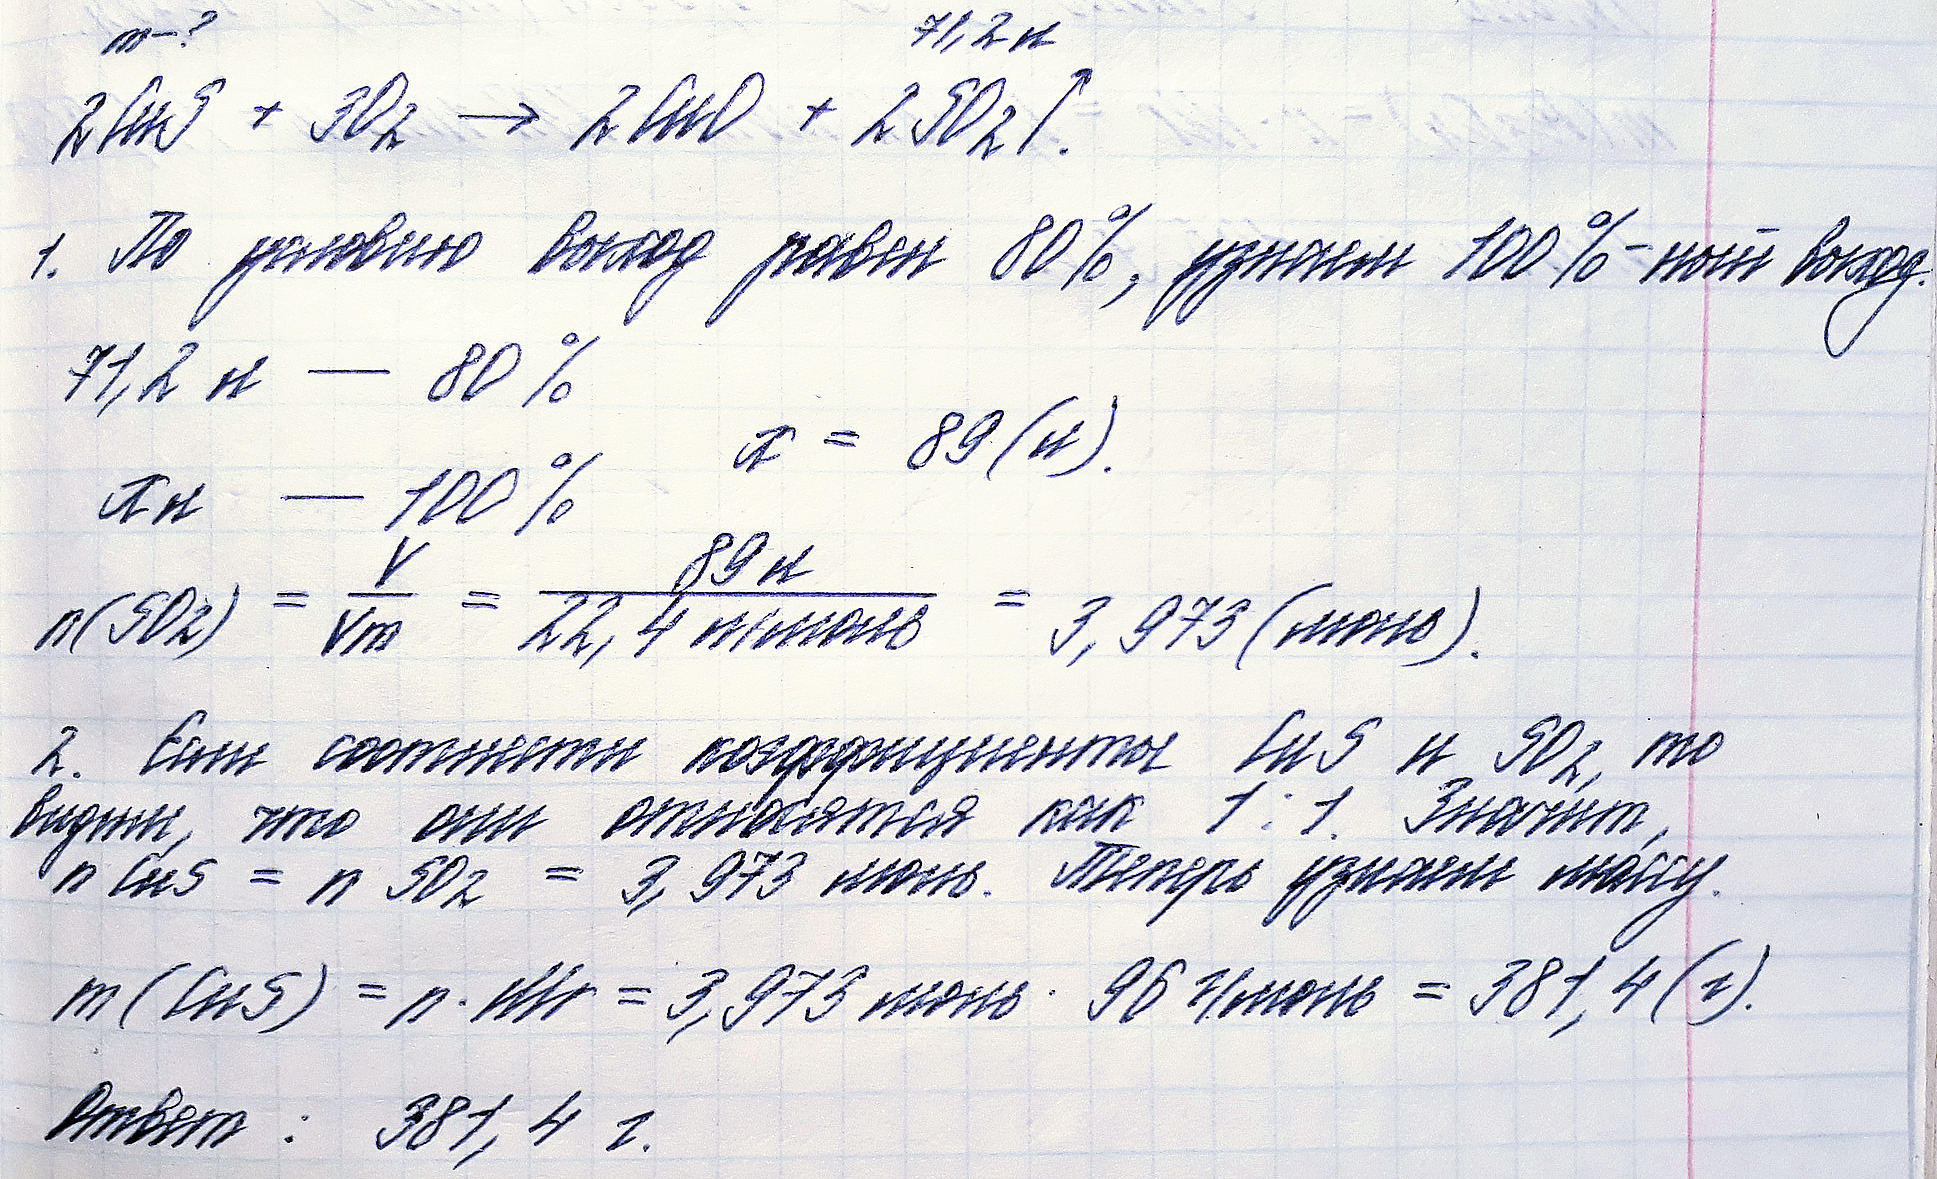 m-? 71,2 л
2CuS + 3O2 → 2CuO + 2SO2↑.
1. По условию выход равен 80%, узнаем 100%-ный выход.
71,2 л — 80%
x л — 100% x = 89 (л).
n(SO2) = V/Vm = 89 л / 22,4 л/моль = 3,973 (моль).
2. Если соотнести коэффициенты CuS и SO2, то
видим, что они относятся как 1:1. Значит,
n CuS = n SO2 = 3,973 моль. Теперь узнаем массу.
m(CuS) = n · Mr = 3,973 моль · 96 г/моль = 381,4 (г).
Ответ: 381,4 г.